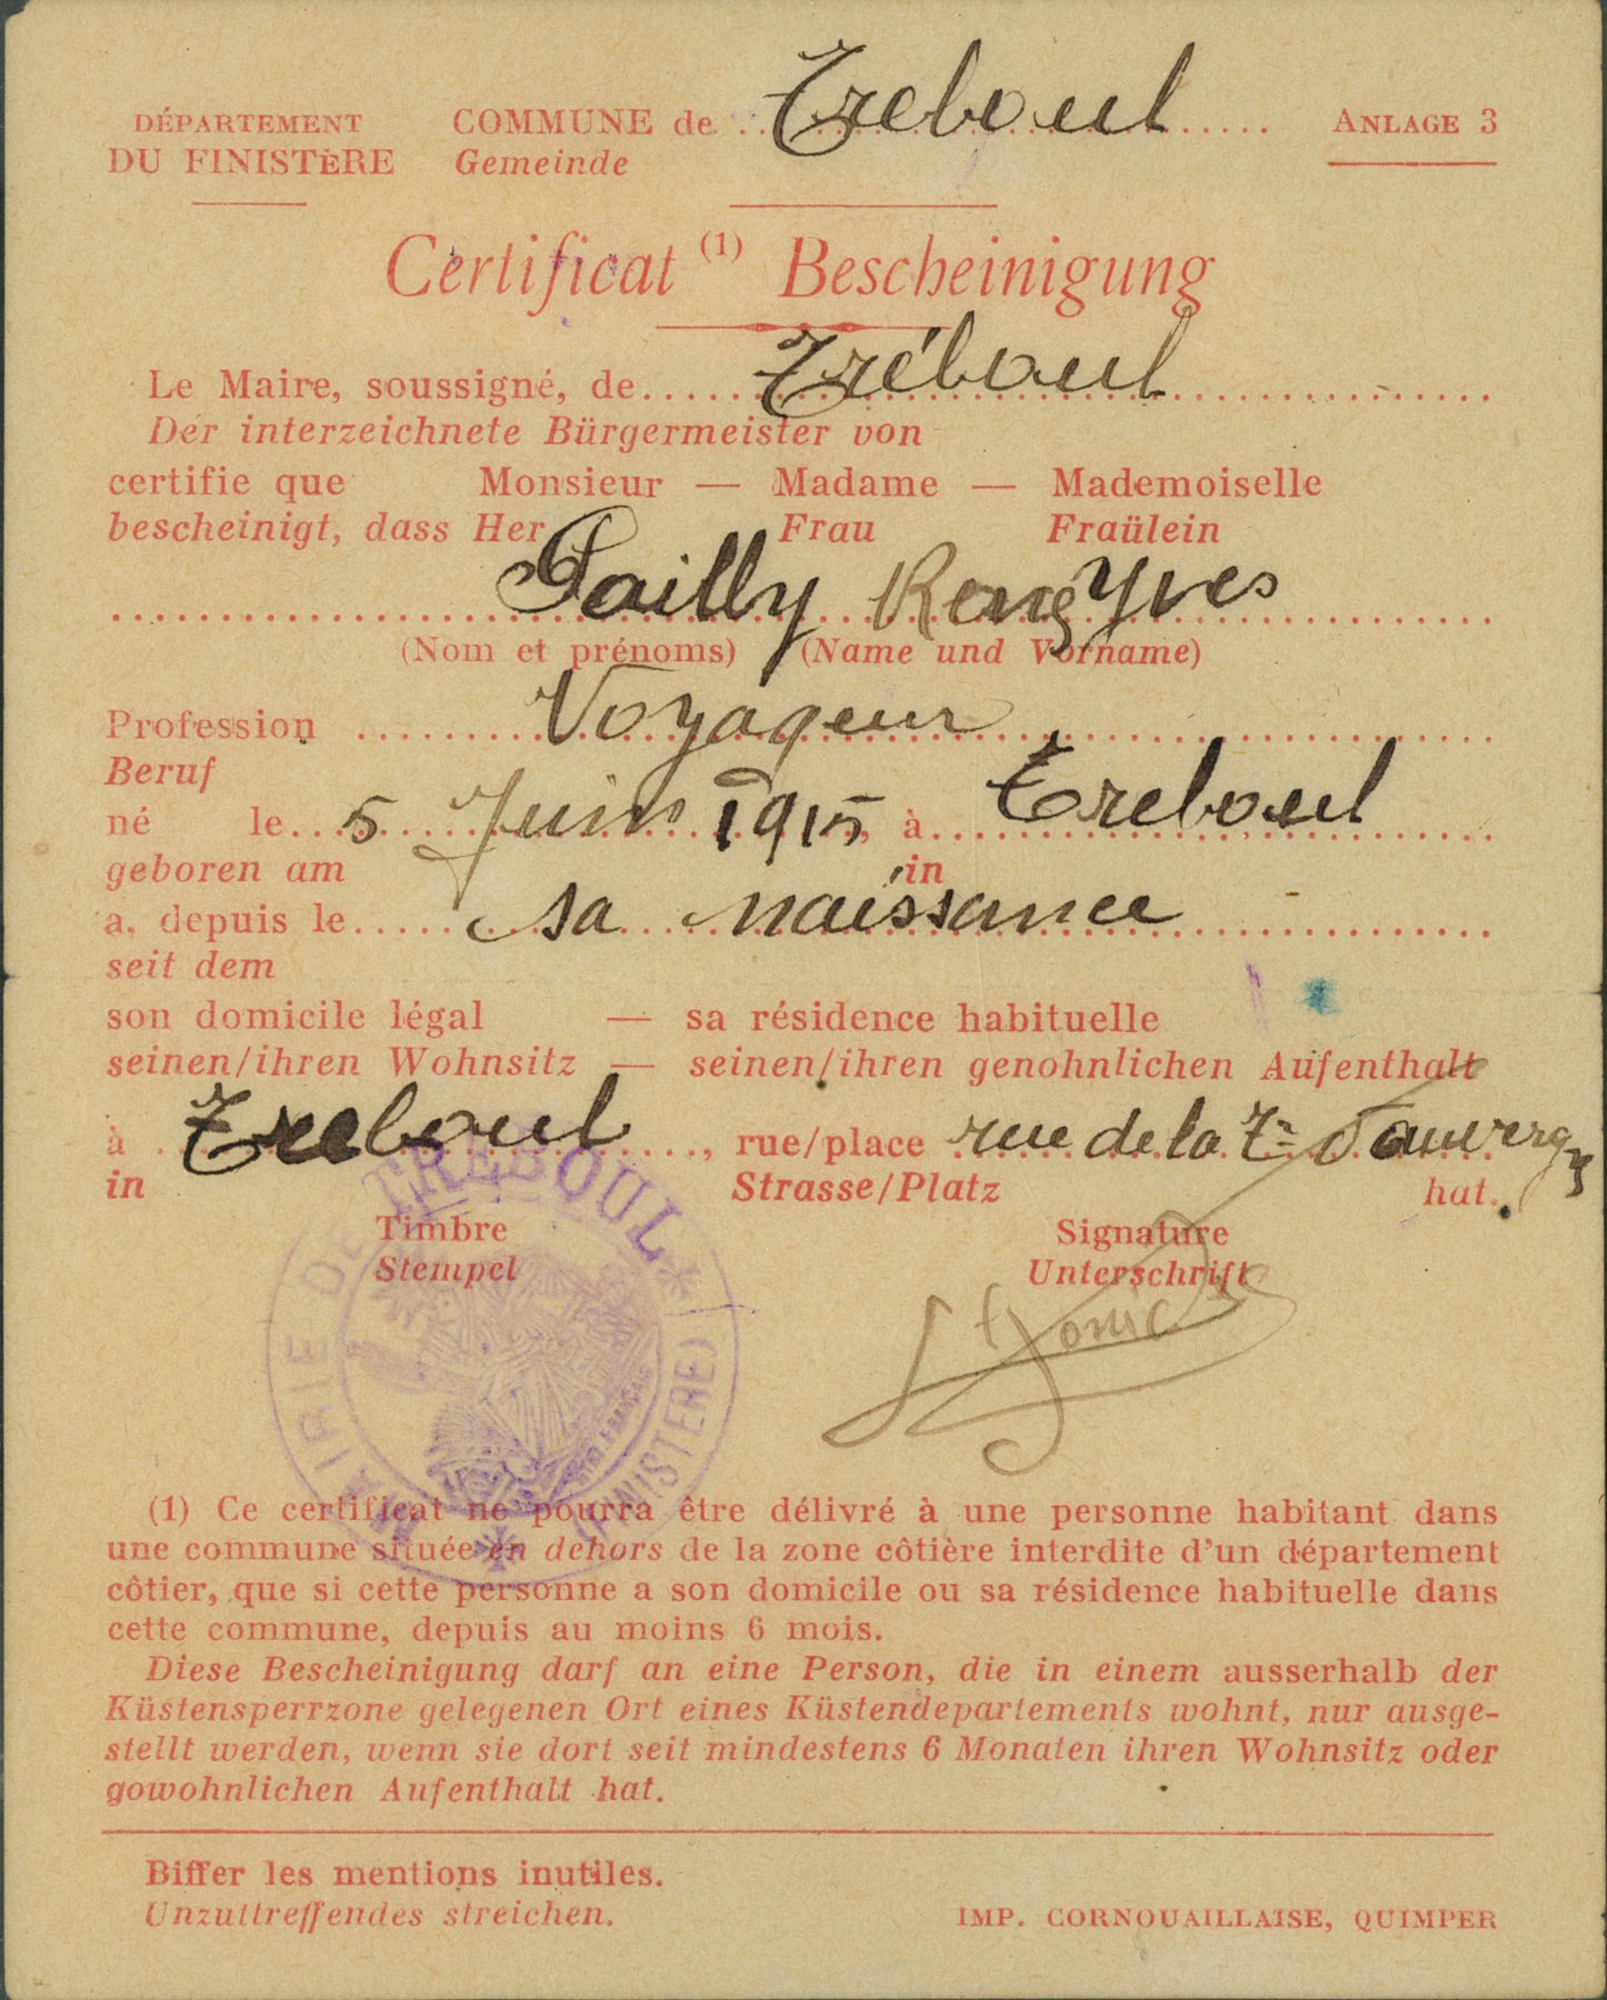 DÉPARTEMENT COMMUNE de Treboul ANLAGE 3
DU FINISTÈRE Gemeinde
Certificat (1) Bescheinigung
Le Maire, soussigné, de Tréboul
Der interzeichnete Bürgermeister von
certifie que Monsieur — Madame — Mademoiselle
bescheinigt, dass Her Frau Fraülein
Pailly René Yves
(Nom et prénoms) (Name und Vorname)
Profession Voyageur
Beruf
né le 5 Juin 1915, à Treboul
geboren am in
a, depuis le sa naissance
seit dem
son domicile légal — sa résidence habituelle
seinen/ihren Wohnsitz — seinen/ihren genohnlichen Aufenthalt
à Treboul, rue/place rue de la
in Strasse/Platz hat.
Timbre Signature
Stempel Unterschrift
MAIRIE DE TREBOUL * (FINISTERE) *
ETAT FRANÇAIS
(1) Ce certificat ne pourra être délivré à une personne habitant dans
une commune située en dehors de la zone côtière interdite d'un département
côtier, que si cette personne a son domicile ou sa résidence habituelle dans
cette commune, depuis au moins 6 mois.
Diese Bescheinigung darf an eine Person, die in einem ausserhalb der
Küstensperrzone gelegenen Ort eines Küstendepartements wohnt, nur ausge-
stellt werden, wenn sie dort seit mindestens 6 Monaten ihren Wohnsitz oder
gowohnlichen Aufenthalt hat.
Biffer les mentions inutiles.
Unzuttreffendes streichen. IMP. CORNOUAILLAISE, QUIMPER